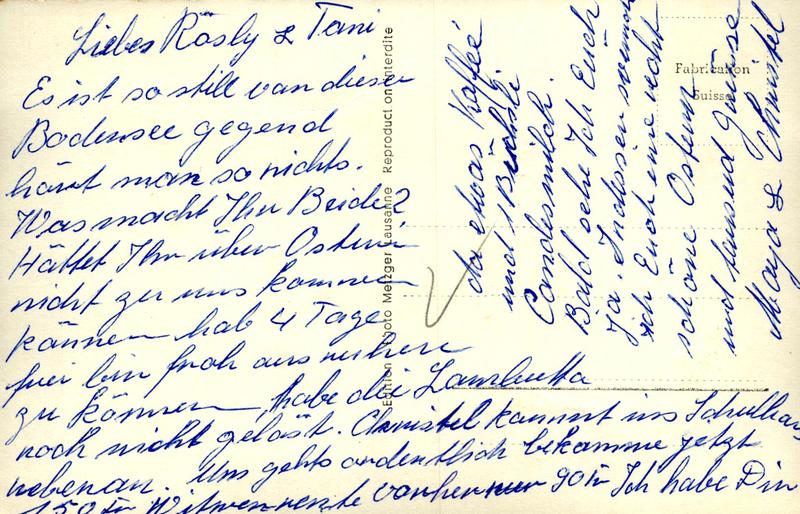 Liebes Rösly & Tani
Es ist so still von dieser
Bodensee gegend
hört man so nichts.
Was macht Ihr Beide?
Hättet Ihr über Ostern
nicht zu uns kommen
können hab 4 Tage
frei bin froh ausruhen
zu können, habe die Lambretta
noch nicht gelöst. Christel kommt ins Schulhau
nebenan. Uns gehts ordentlich bekomme jetzt
150 Fr Witwenrente vorher nur 90 Fr Ich habe Dir
da etwas Kaffee
und 1 Büchsli
Condesmilch.
Bald sehe Ich Euch
ja. Indessen wünsche
ich Euch eine recht
schöne Ostern
und tausend Grüsse
Maya & Christel
Edition Photo Metzger Lausanne Reproduction interdite
Fabrication
Suisse